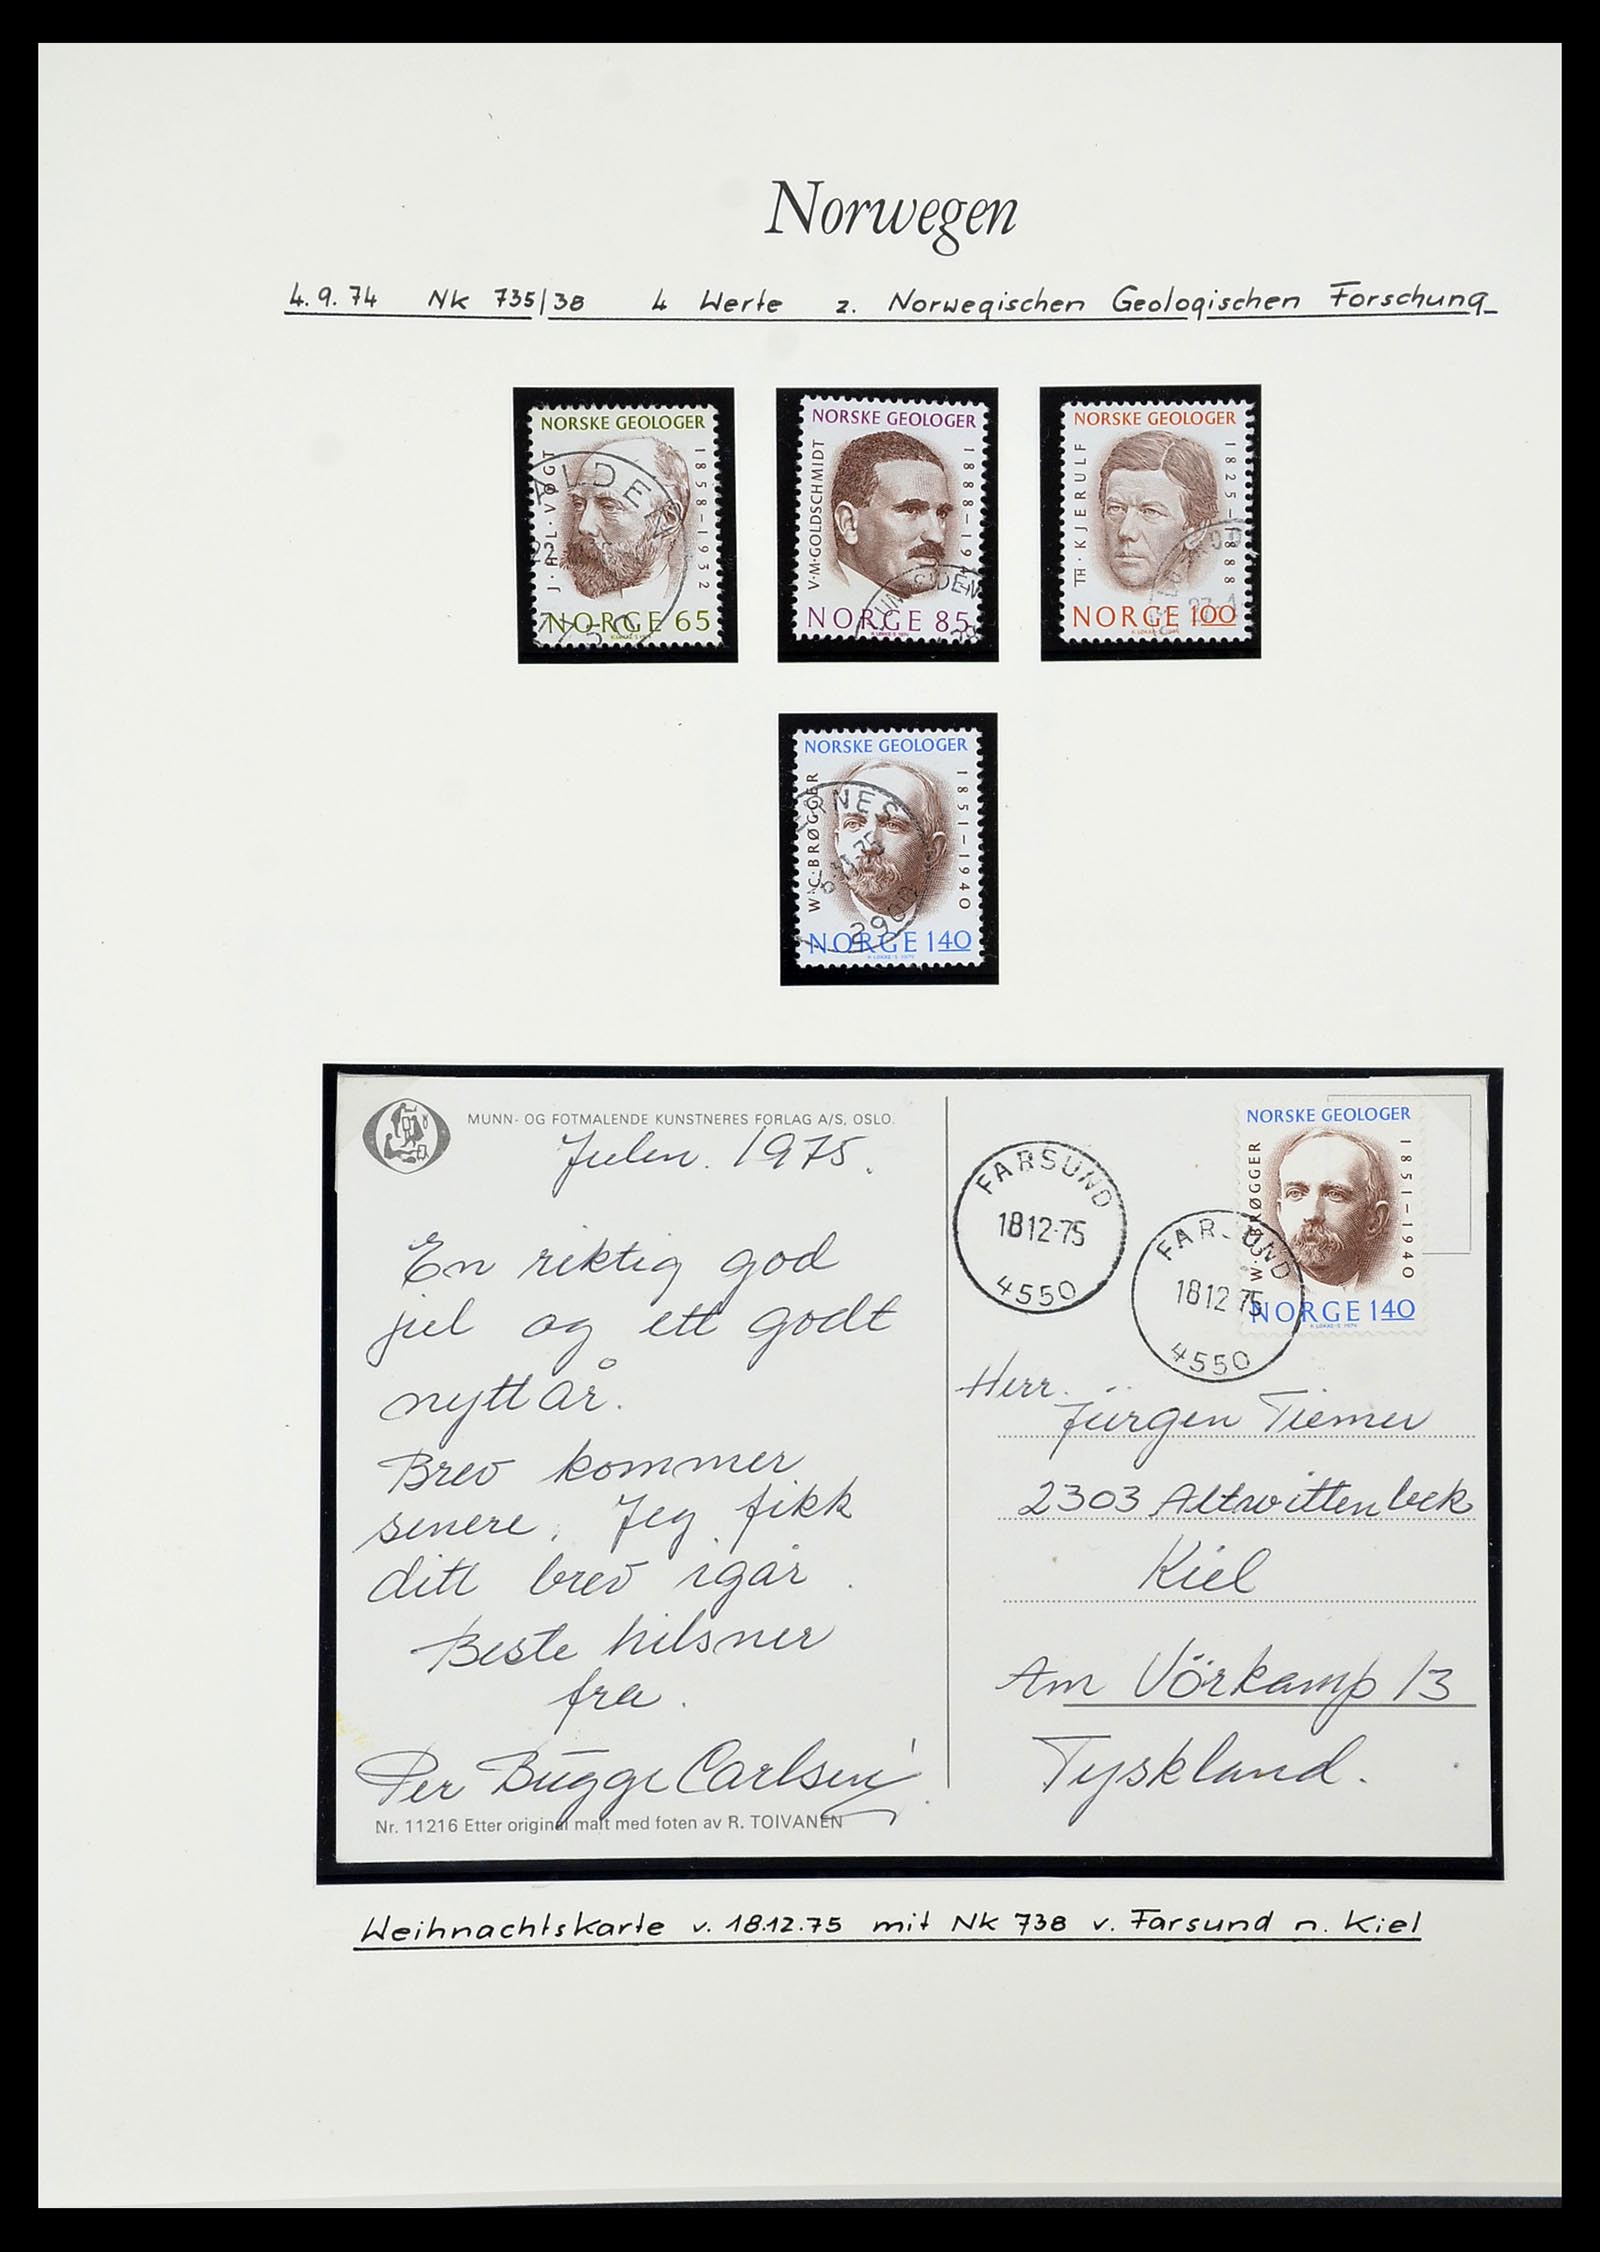 Norwegen
4.9.74 Nk 735/38 4 Werte z. Norwegischen Geologischen Forschung
NORSKE GEOLOGER
J·H·L·VOGT
1858–1932
ALDEN
22
50
NORGE 65
NORSKE GEOLOGER
V·M·GOLDSCHMIDT
1888–19
NORGE 85
NORSKE GEOLOGER
TH·KJERULF
1825–1888
NORGE 100
NORSKE GEOLOGER
W·C·BRØGGER
1851–1940
RNES
75
29
NORGE 140
K LØKKE-S 1974
MUNN- OG FOTMALENDE KUNSTNERES FORLAG A/S, OSLO.
Julen. 1975.
En riktig god
jul og ett godt
nytt år.
Brev kommer
senere. Jeg fikk
ditt brev igår.
Beste hilsner
fra.
Per Bugge Carlsen
Nr. 11216 Etter original malt med foten av R. TOIVANEN
FARSUND
18 12·75
4550
FARSUND
18 12 75
4550
NORSKE GEOLOGER
W·C·BRØGGER
1851–1940
NORGE 140
K LØKKE-S 1974
Herr.
Jürgen Tiemer
2303 Altwittenbek
Kiel
Am Vörkamp 13
Tyskland.
Weihnachtskarte v. 18.12.75 mit Nk 738 v. Farsund n. Kiel